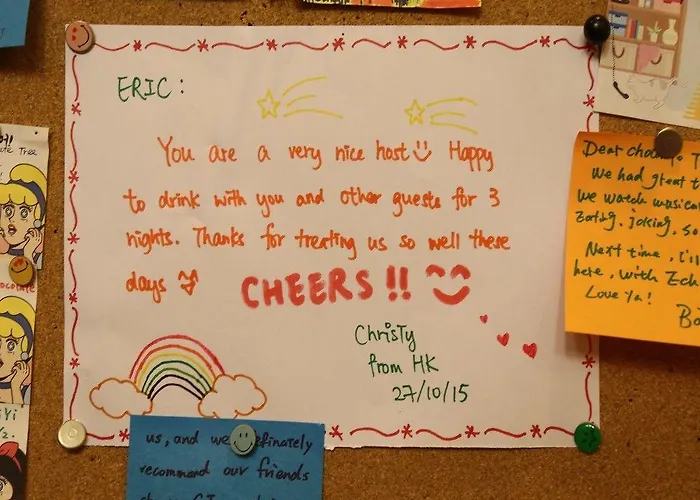 ERIC:
You are a very nice host Happy
to drink with you and other guests for 3
nights. Thanks for treating us so well these
days
CHEERS!!
Christy
from HK
27/10/15
Dear
We had great t
we watch musical
Eating, joking, so
Next time, I'll
here, with
Love Ya!
us, and we definately
recommend our friends